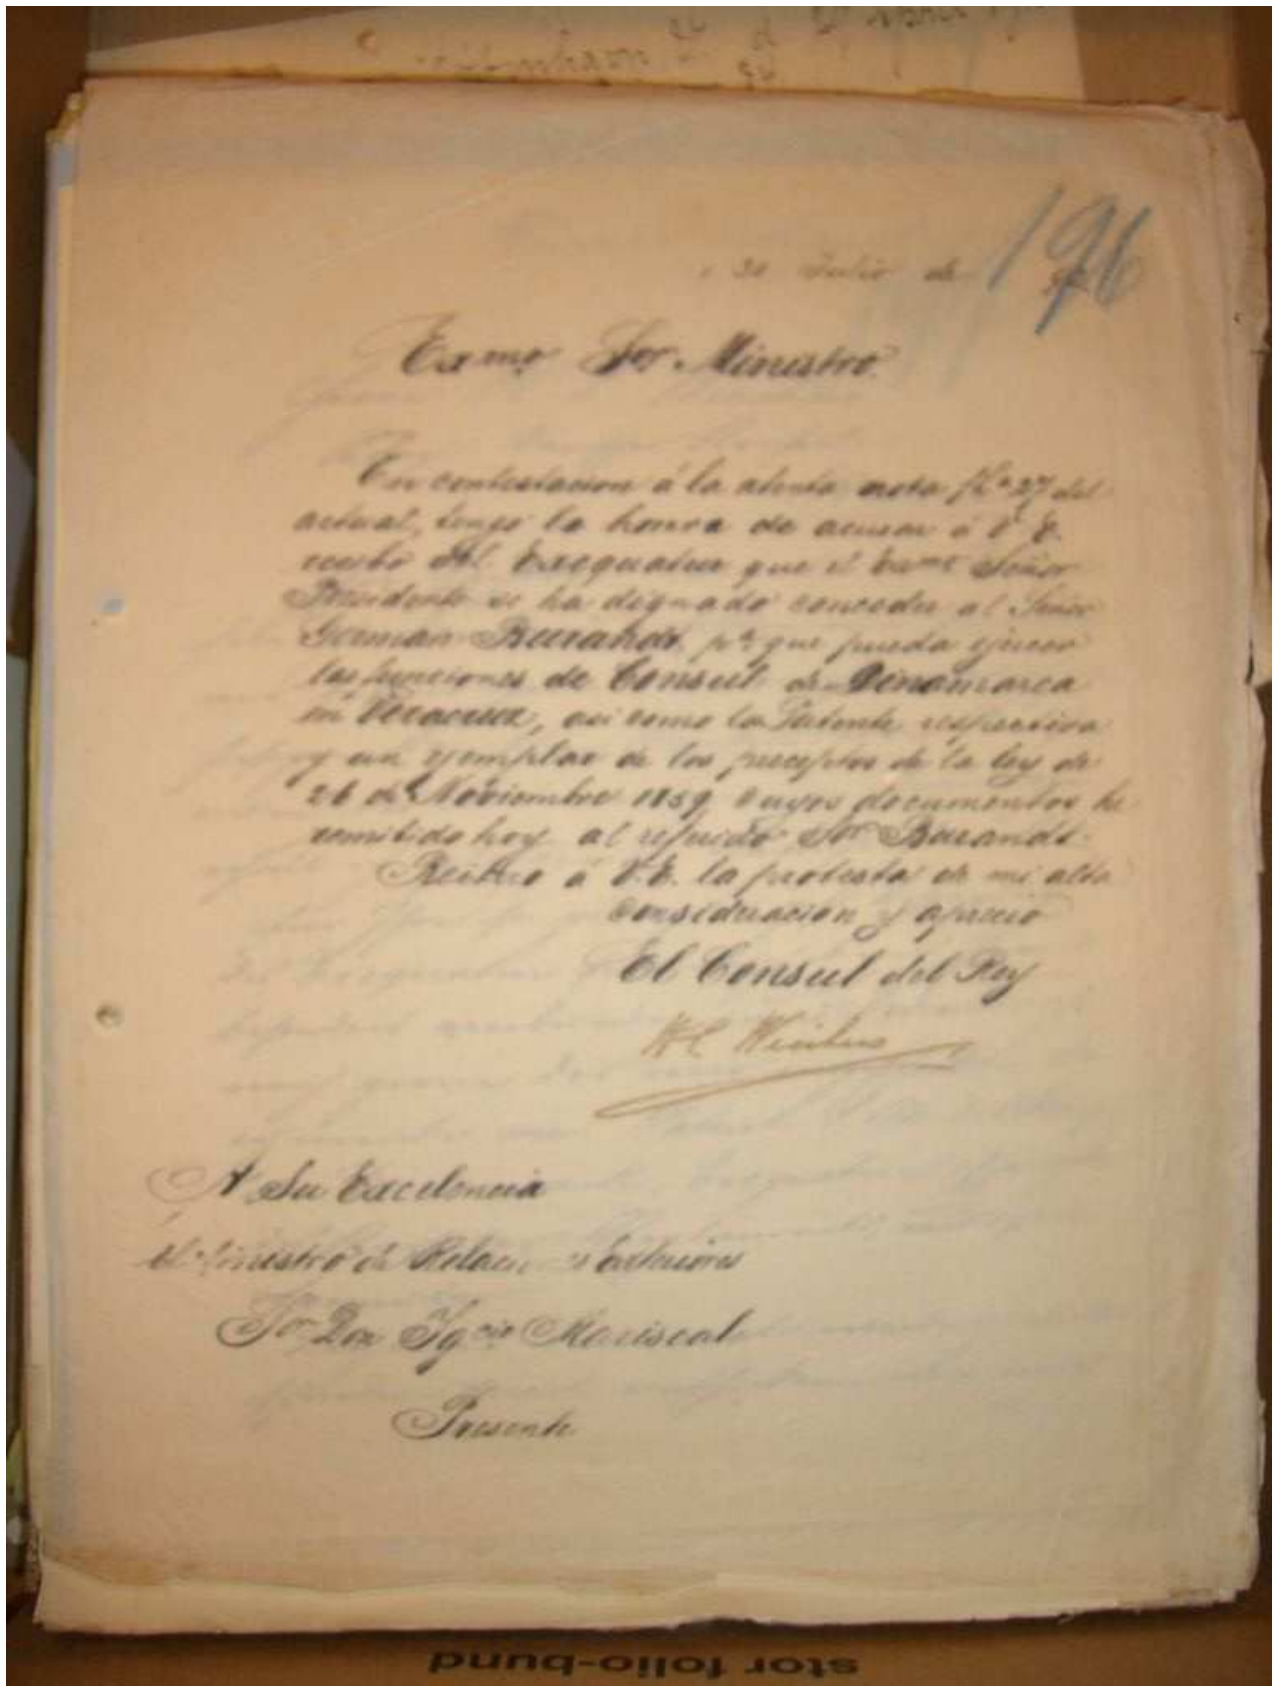 196
30 Julio de
Exmo Sor Ministro.
En contestacion á la atenta nota fha 27 del
actual, tengo la honra de acusar á V. E.
recibo del Exequatur que el Exmo Señor
Presidente se ha dignado conceder al Señor
German Burandt pa que pueda ejercer
las funciones de Consul de Dinamarca
en Veracruz, asi como la Patente respectiva
y un ejemplar de los preceptos de la ley de
26 de Noviembre 1859 cuyos documentos he
remitido hoy al referido Sor Burandt.
Reitero á V. E. la protesta de mi alta
consideracion y aprecio
El Consul del Rey
A Su Excelencia
el Ministro de Relaciones Exteriores
Sor Don Igcio Mariscal
Presente
stor folio-bund